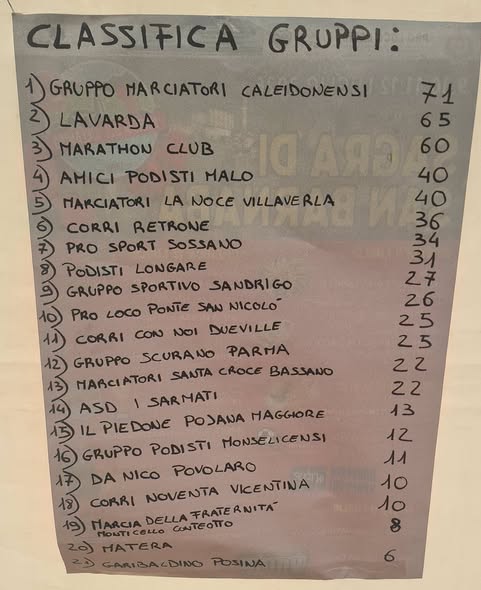 CLASSIFICA GRUPPI:
1) GRUPPO MARCIATORI CALEIDONENSI 71
2) LAVARDA 65
3) MARATHON CLUB 60
4) AMICI PODISTI MALO 40
5) MARCIATORI LA NOCE VILLAVERLA 40
6) CORRI RETRONE 36
7) PRO SPORT SOSSANO 34
8) PODISTI LONGARE 31
9) GRUPPO SPORTIVO SANDRIGO 27
10) PRO LOCO PONTE SAN NICOLO' 26
11) CORRI CON NOI DUEVILLE 25
12) GRUPPO SCURANO PARMA 25
13) MARCIATORI SANTA CROCE BASSANO 22
14) ASD I SARMATI 22
15) IL PIEDONE POJANA MAGGIORE 13
16) GRUPPO PODISTI MONSELICENSI 12
17) DA NICO POVOLARO 11
18) CORRI NOVENTA VICENTINA 10
19) MARCIA DELLA FRATERNITA' 10
MONTICELLO CONTEOTTO
20) MATERA 8
21) GARIBALDINO POSINA 6
SAGRA DI
SAN BARNABA